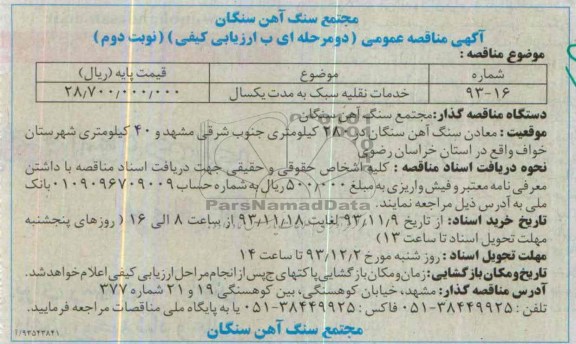 مجتمع سنگ آهن سنگان
آگهی مناقصه عمومی (دومرحله ای ب ارزیابی کیفی) (نوبت دوم)
موضوع مناقصه :
شماره موضوع قیمت پایه (ریال)
۹۳-۱۶ خدمات نقلیه سبک به مدت یکسال ۲۸,۷۰۰,۰۰۰,۰۰۰
دستگاه مناقصه گذار: مجتمع سنگ آهن سنگان
موقعیت : معادن سنگ آهن سنگان در ۲۸۰ کیلومتری جنوب شرقی مشهد و ۴۰ کیلومتری شهرستان
خواف واقع در استان خراسان رضوی
نحوه دریافت اسناد مناقصه : کلیه اشخاص حقوقی و حقیقی جهت دریافت اسناد مناقصه با داشتن
معرفی نامه معتبر و فیش واریزی به مبلغ ۵۰۰,۰۰۰ ریال به شماره حساب ۰۱۰۹۰۹۶۷۰۹۰۰۹ بانک
ملی به آدرس ذیل مراجعه نمایند.
تاریخ خرید اسناد: از تاریخ ۹۳,۱۱,۹ لغایت ۹۳,۱۱,۱۸ از ساعت ۸ الی ۱۶ ( روزهای پنجشنبه
مهلت تحویل اسناد تا ساعت ۱۳)
مهلت تحویل اسناد : روز شنبه مورخ ۹۳,۱۲,۲ تا ساعت ۱۴
تاریخ ومکان بازگشایی: زمان و مکان بازگشایی پاکتهای ج پس از انجام مراحل ارزیابی کیفی اعلام خواهد شد.
آدرس مناقصه گذار: مشهد، خیابان کوهسنگی، بین کوهسنگی ۱۹ و ۲۱ شماره ۳۷۷
تلفن : ۳۸۴۴۹۹۲۵-۰۵۱ فاکس : ۳۸۴۴۹۹۲۵-۰۵۱ یا به پایگاه ملی مناقصات مراجعه فرمایید.
مجتمع سنگ آهن سنگان
ParsNamadData